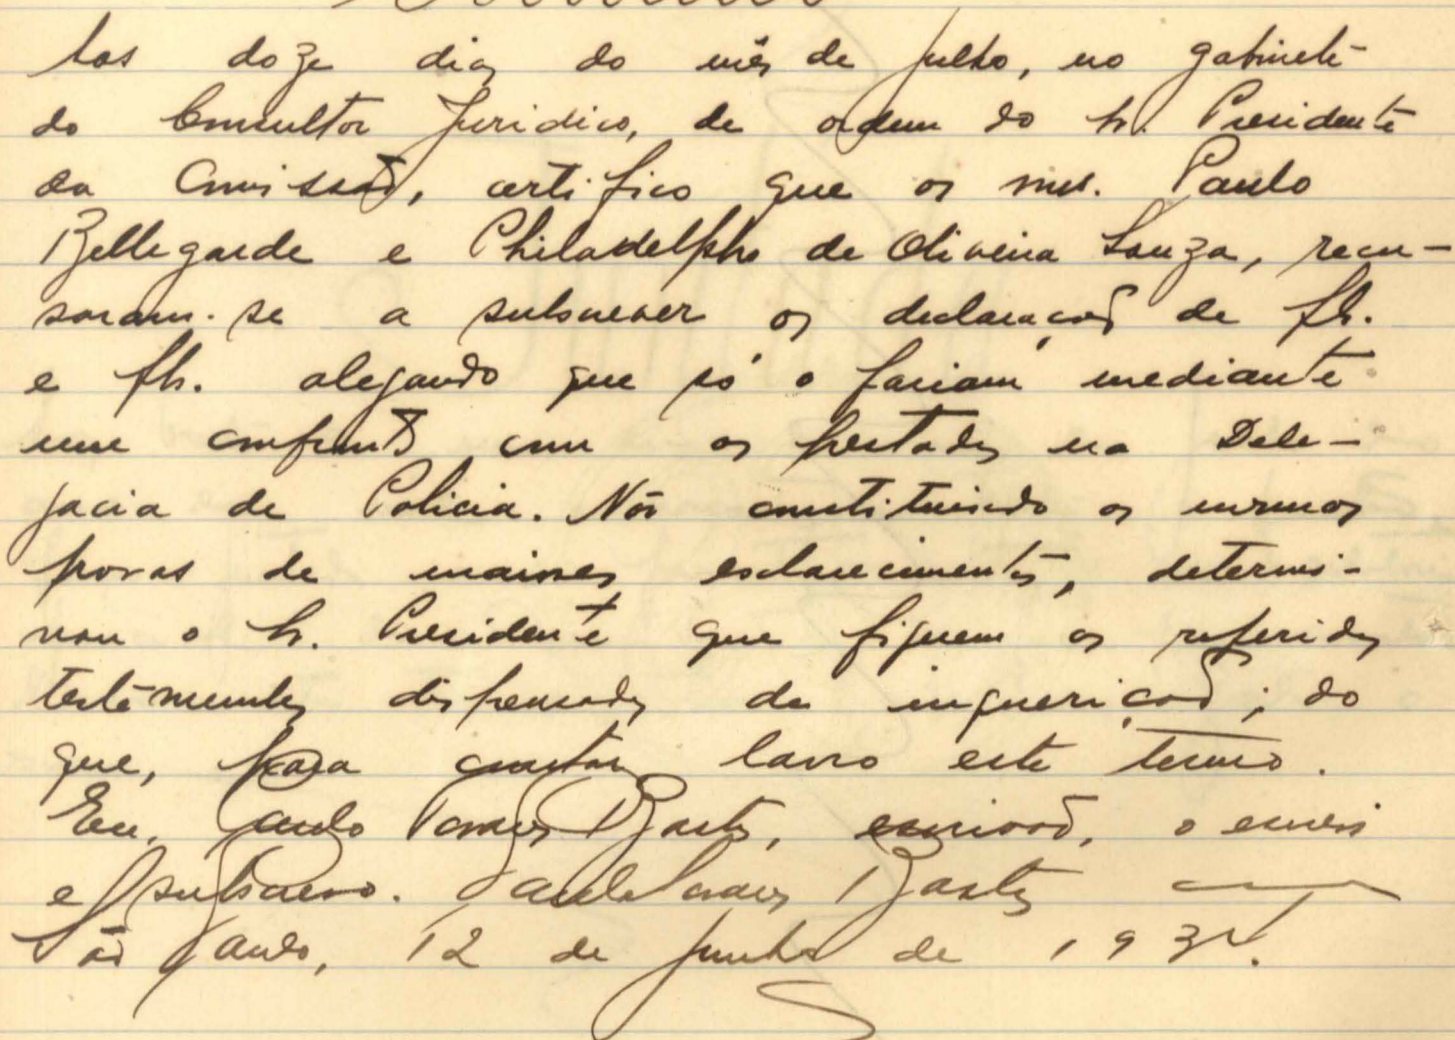 Aos doze dias do mês de julho, no gabinete
do Consultor Juridico, de ordem do Sr. Presidente
da Comissão, certifico que os snrs. Paulo
Bellegarde e Philadelpho de Oliveira Souza, recu-
saram-se a subscrever as declarações de fls.
e fls. alegando que só o fariam mediante
um confronto com as prestadas na Dele-
gacia de Policia. Não constituindo as mesmas
provas de maiores esclarecimentos, determi-
nou o Sr. Presidente que fiquem as referidas
testemunhas dispensadas da inquerição; do
que, para constar, lavro este termo.
Eu, Paulo Bastos, escrivão, o escrevi
e subscrevo. Paulo Bastos
São Paulo, 12 de Junho de